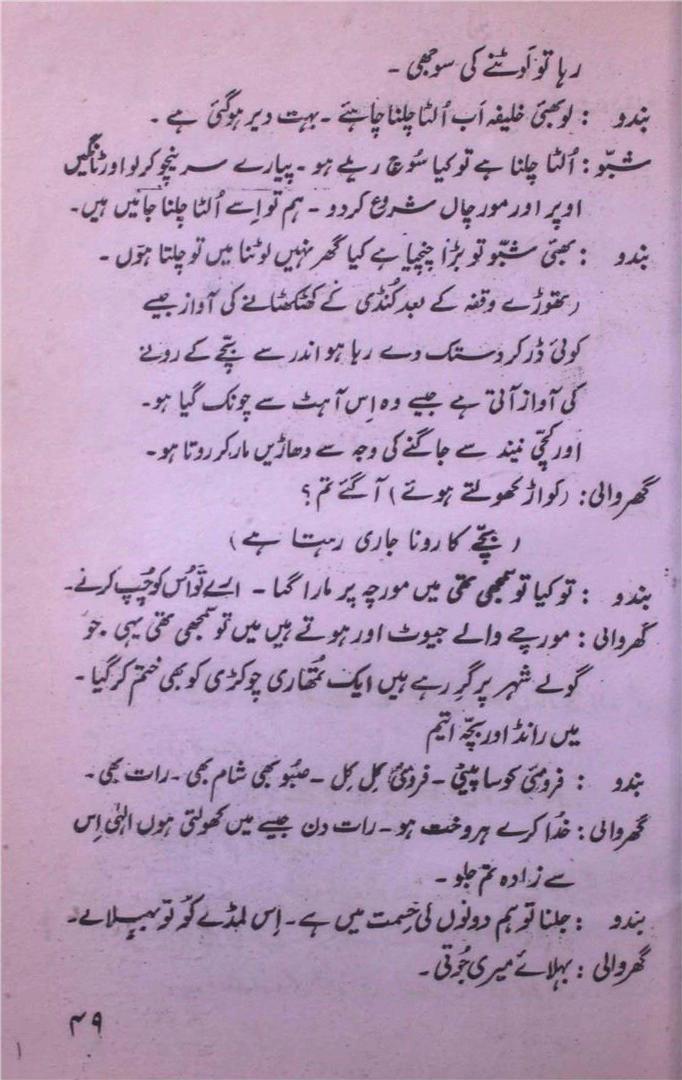 رہا تو لَوٹنے کی سوجھی ۔
بندو : لو بھئی خلیفہ اَب اُلٹا چلنا چاہئے ۔ بہت دیر ہوگئی ہے ۔
شبّو : اُلٹا چلنا ہے تو کیا سُوچ ریلے ہو ۔ پیارے سر نیچُو کر لو اور ٹانگیں
اوپر اور مور چال شروع کردو ۔ ہم تو اِسے اُلٹا چلنا جانیں ہیں ۔
بندو : بھئی شبّو تو بڑا چنچیا ہے کیا گھر نہیں لوٹنا میں تو چلتا ہوں ۔
(تھوڑے وقفہ کے بعد کُنڈی کے کھٹکھٹانے کی آواز جیسے
کوئی ڈر کر دستک دے رہا ہو اندر سے بچّے کے رونے
کی آواز آتی ہے جیسے وہ اِس آہٹ سے چونک گیا ہو۔
اور کچّی نیند سے جاگنے کی وجہ سے دھاڑیں مار کر روتا ہو۔
گھر والی : (کواڑ کھولتے ہوئے) آ گئے تم ؟
(بچّے کا رونا جاری رہتا ہے)
بندو : تو کیا تو سمجھی تھی میں مورچہ پر مارا گیا ۔ اسے تو اُس کو چُپ کرنے ۔
گھر والی : مورچے والے جیوٹ اور ہوتے ہیں میں تو سمجھی تھی یہی ۔ جو
گولے شہر پر گِر رہے ہیں ایک تُمھاری چوکڑی کو بھی ختم کر گیا ۔
میں رانڈ اور بچّہ اتیم
بندو : فرومئی کوسا پیٹی ۔ فرومئی کِل کِل ۔ صبُو بھی شام بھی ۔ رات بھی ۔
گھر والی : خُدا کرے ہر وخت ہو ۔ رات دن جیسے میں کھولتی ہوں الہٰی اِس
سے زادہ تم جلو ۔
بندو : جلنا تو ہم دونوں کی خِسمت میں ہے ۔ اِس لمڈے کو تو بہلالے ۔
گھر والی : بہلائے میری جُوتی ۔
۴۹